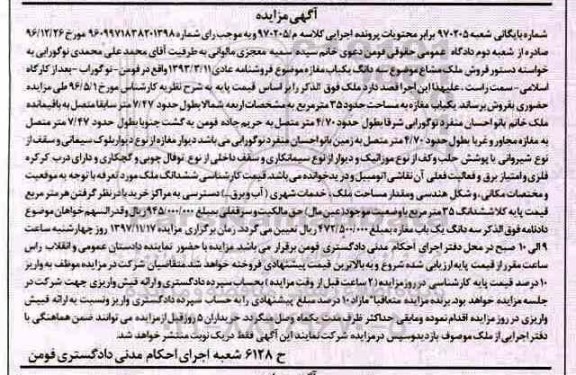 آگهی مزایده
شماره بایگانی شعبه ۹۷۰۲۰۵ برابر محتویات پرونده اجرایی کلاسه م/۹۷۰۲۰۵ و به موجب رای شماره ۹۶۰۹۹۷۱۸۳۸۲۰۱۳۹۸ مورخ ۹۶/۱۲/۲۶
صادره از شعبه دوم دادگاه عمومی حقوقی فومن دعوی خانم سیده سمیه معجزی مالوانی به طرفیت آقای محمد علی محمدی نوگورابی به
خواسته دستور فروش ملک مشاع موضوع سه دانگ یکباب مغازه موضوع فروشنامه عادی ۱۳۹۳/۳/۱۱ واقع در فومن - نوگوراب - بعد از کارگاه
اسلامی - سمت راست ، علیهذا این اجرا قصد دارد ملک فوق الذکر را بر اساس قیمت پایه به شرح نظریه کارشناس مورخ ۹۶/۵/۱ طی مزایده
حضوری بفروش برساند. یکباب مغازه به مساحت حدود ۳۵ متر مربع به مشخصات اربعه شمالا بطول حدود ۷/۴۷ متر سابقا متصل به باقیمانده
ملک خانم بانو احسان منفرد نوگورابی شرقا بطول حدود ۴/۷۰ متر متصل به حریم جاده فومن به گشت جنوبا بطول حدود ۷/۴۷ متر متصل
به مغازه مجاور و غربا بطول حدود ۴/۷۰ متر متصل به زمین بانو احسان منفرد نوگورابی می باشد دیوار مغازه از نوع دیوار بلوک سیمانی و سقف از
نوع شیروانی با پوشش حلب و کف از نوع موزائیک و دیوار از نوع سیمانکاری و سقف داخلی از نوع توفال چوبی و گچکاری و دارای درب کرکره
فلزی و امتیاز برق و فعالیت فعلی آن نقاشی اتومبیل و در ید خوانده می باشد. قیمت کارشناسی ششدانگ ملک مورد تعرفه با توجه به موقعیت
و مختصات مکانی، و شکل هندسی و مقدار مساحت ملک ، خدمات شهری ( آب و برق...) دسترسی به مراکز خرید با در نظر گرفتن هر متر مربع
قیمت پایه کلا ششدانگ ۳۵ متر مربع با وضعیت موجود (عین مال) حق مالکیت و سرقفلی بمبلغ ۹۴۵/۰۰۰/۰۰۰ ریال و قدرالسهم خواهان موضوع
دادنامه فوق الذکر سه دانگ یک باب مغازه بمبلغ ۴۷۲/۵۰۰/۰۰۰ ریال تعیین می گردد. زمان برگزاری مزایده ۱۳۹۷/۱۱/۱۷ روز چهارشنبه ساعت
۹ الی ۱۰ صبح در محل دفتر اجرای احکام مدنی دادگستری فومن برقرار می باشد. مزایده با حضور نماینده دادستان عمومی و انقلاب راس
ساعت مقرر از قیمت پایه ارزیابی شده شروع و به بالاترین قیمت پیشنهادی فروخته خواهد شد. متقاضیان شرکت در مزایده موظف به واریز
۱۰ درصد قیمت پایه کارشناسی در روز مزایده (۲ ساعت قبل از وقت مزایده) بحساب سپرده دادگستری و ارائه فیش واریزی جهت شرکت در
جلسه مزایده خواهد بود. برنده مزایده متعاقبا" مازاد ۱۰ درصد مبلغ پیشنهادی را به حساب سپرده دادگستری واریز و نسبت به ارائه فیش
واریزی در روز مزایده اقدام نموده و مابقی حداکثر ظرف مدت یکماه وصل میگردد. خریداران ۵ روز قبل از مزایده می توانند ضمن هماهنگی با
دفتر اجرا از ملک موصوف بازدید و سپس در مزایده شرکت نمایند این آگهی فقط در یک نوبت منتشر خواهد شد.
ح ۶۱۲۸ شعبه اجرای احکام مدنی دادگستری فومن